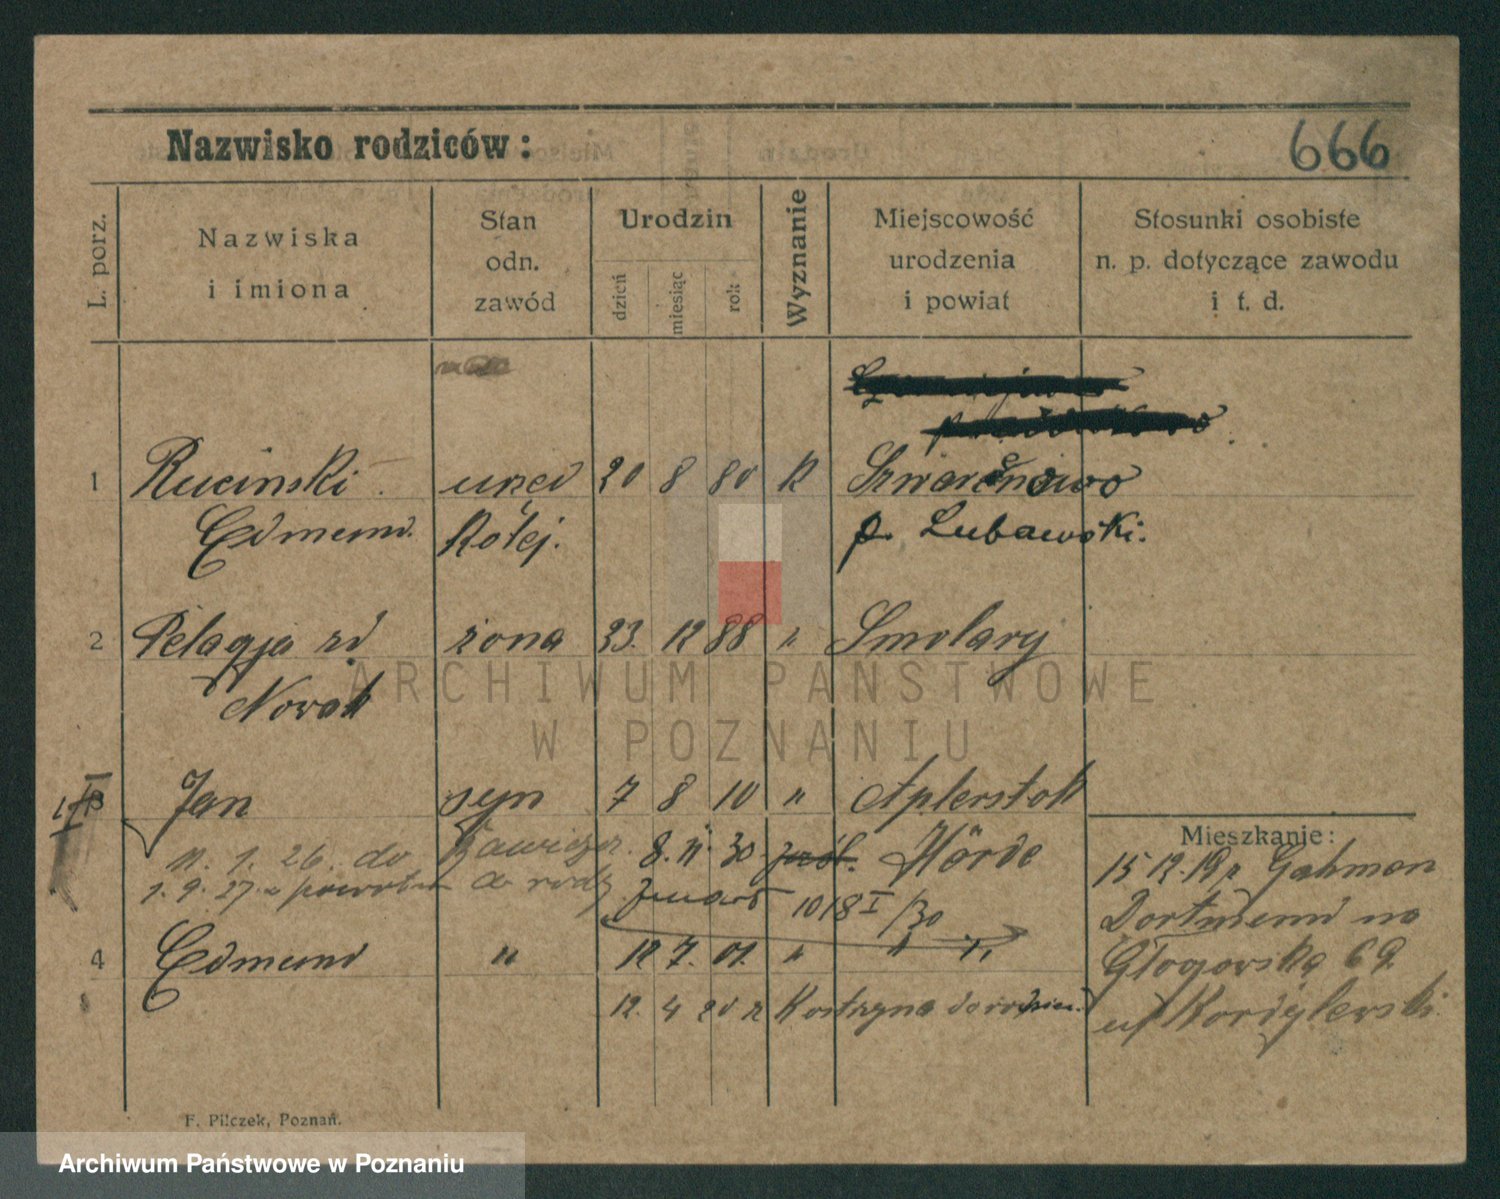 Nazwisko rodziców:
666
L. porz.
Nazwiska
i imiona
Stan
odn.
zawód
Urodzin
dzień
miesiąc
rok
Wyznanie
Miejscowość
urodzenia
i powiat
Stosunki osobiste
n. p. dotyczące zawodu
i t. d.
1 Ruciński urzęd 20 8 80 k Szwarcenowo
Edmund. Kolej. p. Lubawski.
2 Pelagja zd żona 23. 12 88 " Smolary
Nowak
Jan syn 7 8 10 " Aplerstok
Mieszkanie:
11. 1. 26. do 8. 11. 30 Hörde
1. 9. 27. z powrotem do rodz
zmarł 1018 I/30
15 12. 19 z Gahmen
Dortmund na
4 Edmund " 12 7. 01. " " "
Głogowska 69.
12. 4 20 z Kostrzyna do rodzicu
u/ Kordylewski
F. Pilczek, Poznań.
ARCHIWUM PAŃSTWOWE
W POZNANIU
Archiwum Państwowe w Poznaniu